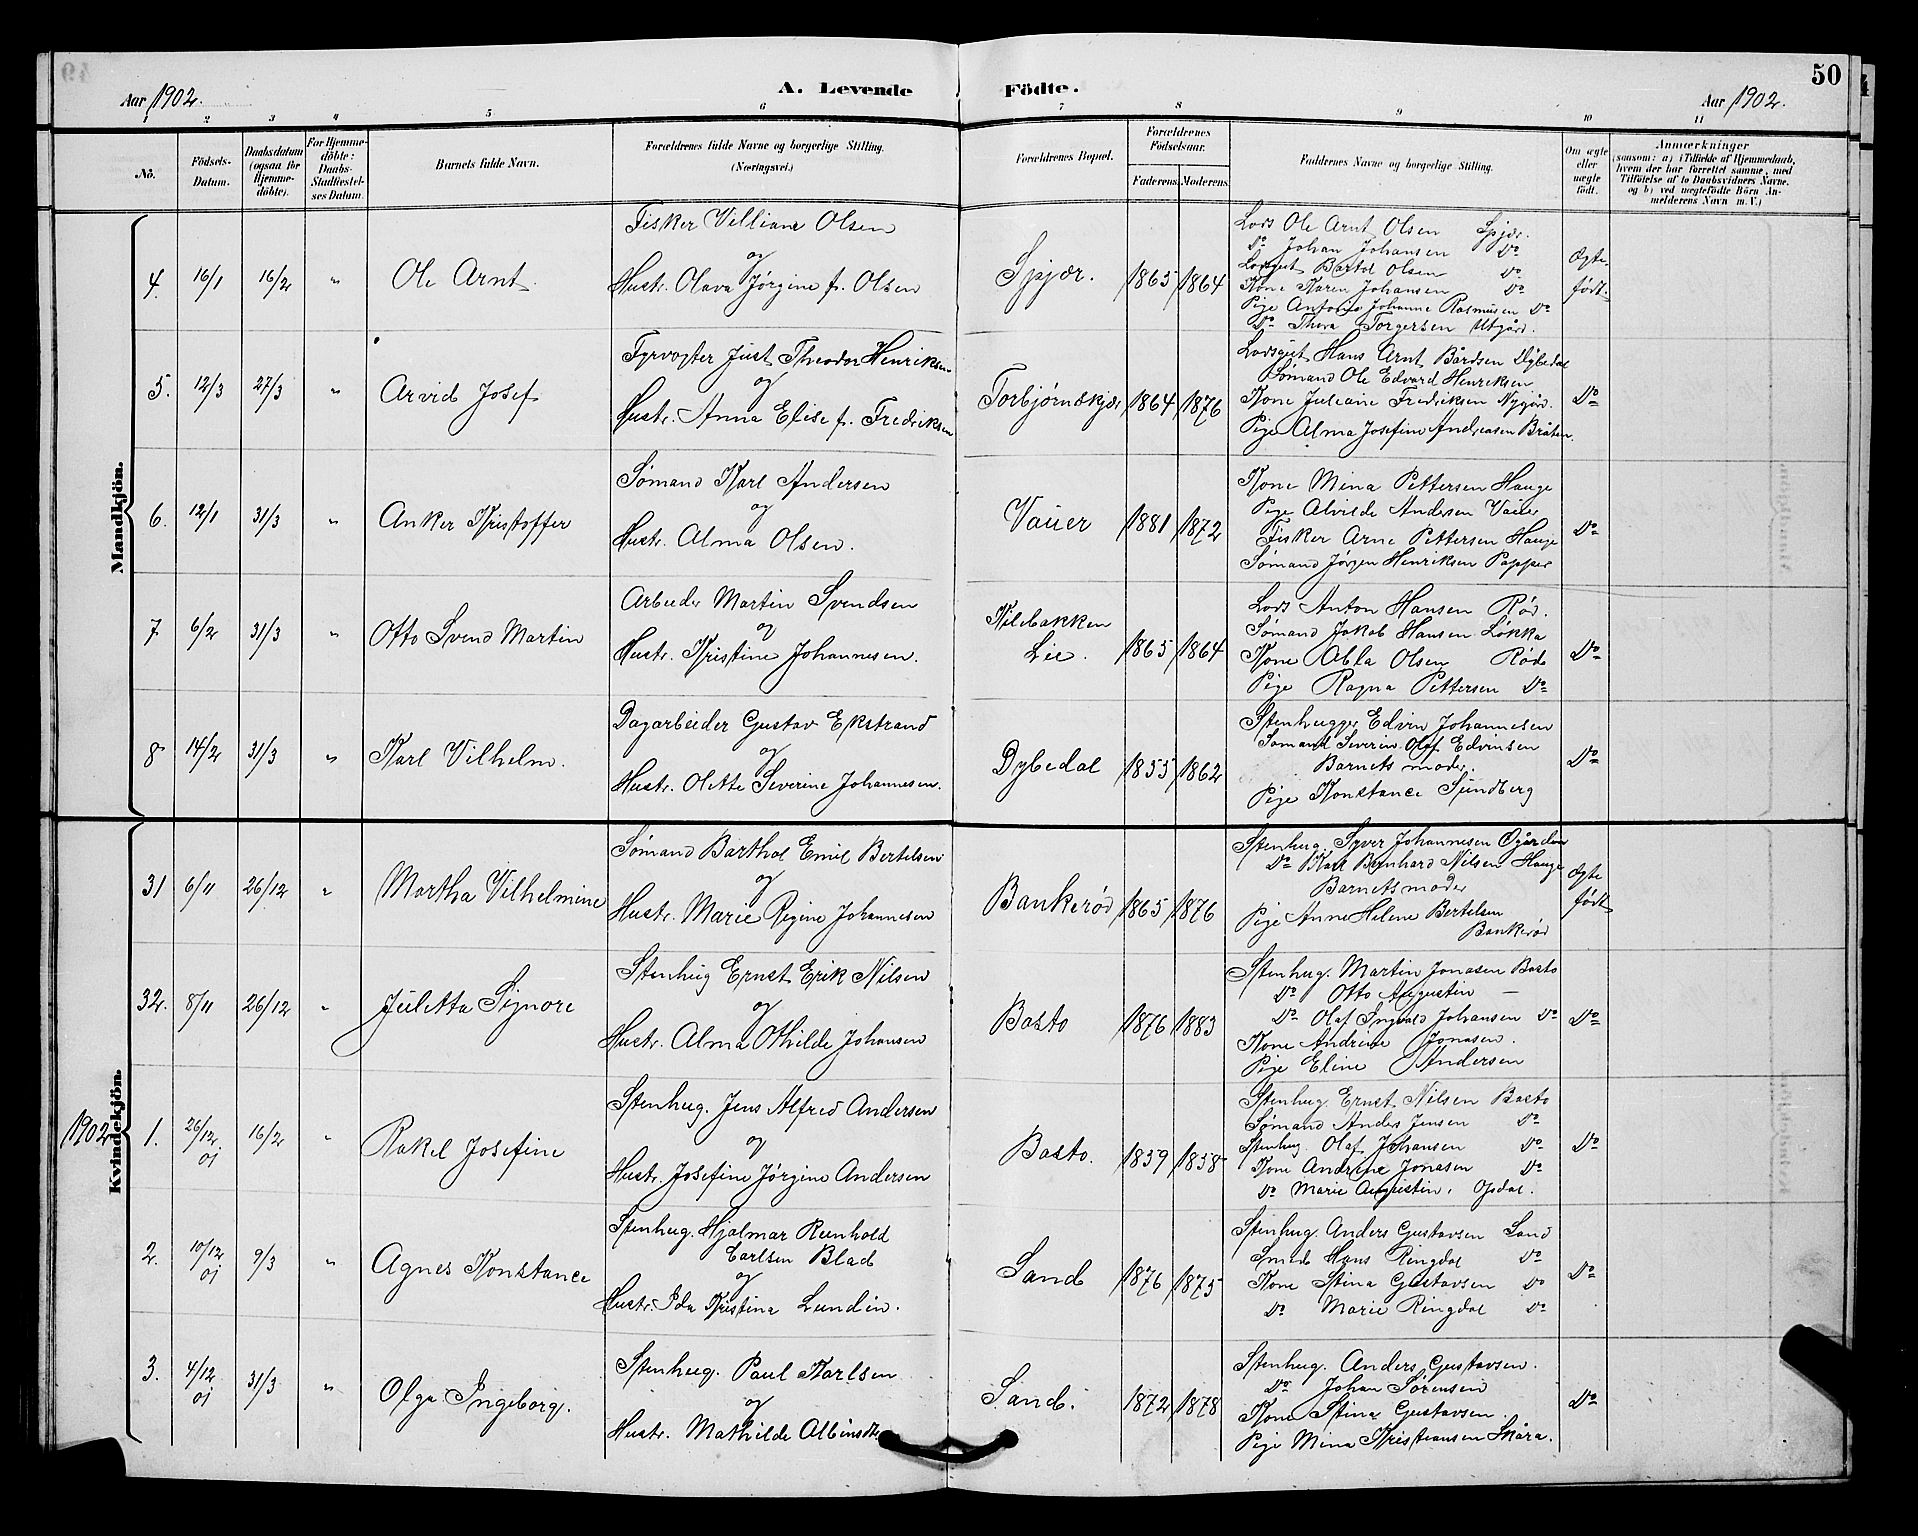 50
Aar 1902.
A. Levende
Födte.
Aar 1902.
1 2 3 4 5 6 7 8 9 10 11
No.
Födsels-Datum.
Daabsdatum (ogsaa for Hjemme-döbte).
For Hjemme-döbte: Daabs-Stadfæstel-ses Datum.
Barnets fulde Navn.
Forældrenes fulde Navne og borgerlige Stilling.
(Næringsvei.)
Forældrenes Bopæl.
Forældrenes Födselsaar.
Faderens. Moderens.
Faddernes Navne og borgerlige Stilling.
Om ægte eller uægte födt.
Anmærkninger
(saasom: a) i Tilfælde af Hjemmedaab,
hvem der har forrettet samme, med
Tilföielse af to Daabsvidners Navne.
og b) ved uægtefödte Börn An-
melderens Navn m.V.)
Mandkjön.
4. 16/1 16/2 " Ole Arnt.
Fisker Villiam Olsen
og
Hustr. Olava Jørgine f. Olsen
Spjær. 1865 1864
Lods Ole Arnt Olsen Spjær.
Do Johan Johansen Do
Lodsgut Bartol Olsen Do
Kone Karen Johansen Do
Pige Antonia Johanne Rasmusen Do
Do Thora Torgersen Utgård.
Ægte født.
5. 12/3 27/3 " Arvid Josef
Fyrvogter Just Theodor Henriksen
og
Hustr. Anna Elise f. Fredriksen
Torbjørnskjær 1864 1876
Lodsgut Hans Arnt Bårdsen Dybedal
Sømand Ole Edvard Henriksen
Kone Juliane Fredriksen Nygård.
Pige Alma Josefine Andreasen Bråten.
Do
6. 12/1 31/3 " Anker Kristoffer
Sømand Karl Andersen
og
Hustr. Alma Olsen.
Vauer 1881 1872
Kone Mina Pettersen Hauge
Pige Alvilde Andersen Vauer
Fisker Arne Pettersen Hauge
Sømand Jørgen Henriksen Papper
Do
7 6/2 31/3 " Otto Svend Martin
Arbeider Martin Svendsen
og
Hustr. Kristine Johannesen.
Kilebakken
Lie. 1865 1864
Lods Anton Hansen Rød.
Sømand Jakob Hansen Løkka
Kone Abla Olsen Røds
Pige Ragna Pettersen Do
Do
8 14/2 31/3 " Karl Vilhelm.
Dagarbeider Gustav Ekstrand
og
Hustr. Olette Severine Johannesen.
Dybedal 1855 1862
Stenhugger Edvin Johannesen
Sømand Severin Olaf Edvinsen
Barnets moder.
Pige Konstance Sundberg
Do
Kvindekjön.
31 6/11 26/12 " Martha Vilhelmine
Sømand Barthol Emil Bertelsen
og
Hustr. Marie Regine Johannesen
Bankerød 1865 1876
Stenhug. Syver Johannesen Øgården
Do Karl Bernhard Nilsen Hauge
Barnets moder
Pige Anne Helene Bertelsen
Bankerød
Ægte født
32. 8/11 26/12 " Juletta Signore
Stenhug Ernst Erik Nilsen
og
Hustr. Alma Othilde Johansen
Basto 1876 1883
Stenhug. Martin Jonasen Basto
Do Otto Augustin —
Do Olaf Ingvald Johansen Do
Kone Andrine Jonasen.
Pige Eline Andersen
Do
1902
1. 26/12 01 16/2 " Rakel Josefine
Stenhug. Jens Alfred Andersen
og
Hustr. Josefine Jørgine Andersen
Basto. 1859 1858
Stenhug. Ernst Nilsen Basto
Sømand Anders Jensen Do
Stenhug Olaf Johansen Do
Kone Andrine Jonasen Do
Do Marie Augustin. Opdal.
Do
2. 10/12 01 9/3 " Agnes Konstance
Stenhug. Hjalmar Reinhold
Carlsen Blad
og
Hustr. Ida Kristina Lundin.
Sand 1876 1875
Stenhug. Anders Gustavsen Sand
Smed Hans Ringdal Do
Kone Stina Gustavsen Do
Do Marie Ringdal Do
Do
3. 4/12 01 31/3 " Olga Ingeborg.
Stenhug. Paul Karlsen
og
Hustr. Mathilde
Sand. 1872 1878
Stenhug. Anders Gustavsen.
Do Johan Sørensen
Kone Stina Gustavsen.
Pige Mina Kristiansen Skåra.
Do